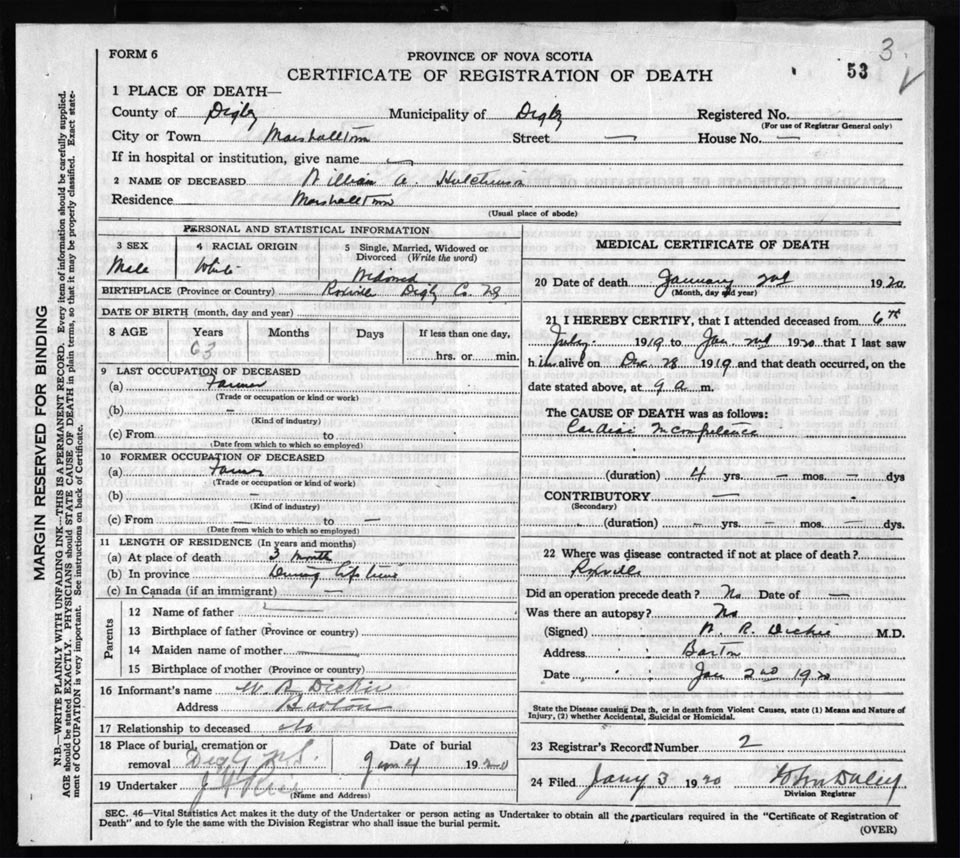 3
FORM 6
PROVINCE OF NOVA SCOTIA
CERTIFICATE OF REGISTRATION OF DEATH
53
1 PLACE OF DEATH—
County of Digby Municipality of Digby Registered No.
(For use of Registrar General only)
City or Town Marshalltown Street — House No. —
If in hospital or institution, give name —
2 NAME OF DECEASED William A. Hutchinson
Residence Marshalltown
(Usual place of abode)
PERSONAL AND STATISTICAL INFORMATION
3 SEX 4 RACIAL ORIGIN 5 Single, Married, Widowed or Divorced (Write the word)
Male White Widowed
BIRTHPLACE (Province or Country) Roxville Digby Co. NS
DATE OF BIRTH (month, day and year)
8 AGE Years Months Days If less than one day,
63 hrs. or min.
9 LAST OCCUPATION OF DECEASED
(a) Farmer
(Trade or occupation or kind or work)
(b) —
(Kind of industry)
(c) From to
(Date from which to which so employed)
10 FORMER OCCUPATION OF DECEASED
(a) Farmer
(Trade or occupation or kind of work)
(b) —
(Kind of industry)
(c) From — to —
(Date from which to which so employed)
11 LENGTH OF RESIDENCE (In years and months)
(a) At place of death 3 month
(b) In province During life time
(c) In Canada (if an immigrant) —
Parents
12 Name of father
13 Birthplace of father (Province or country)
14 Maiden name of mother
15 Birthplace of mother (Province or country)
16 Informant's name W R Dickie
Address Barton
17 Relationship to deceased no
18 Place of burial, cremation or removal Digby N.S. Date of burial Jan 4 1920
19 Undertaker
(Name and Address)
MEDICAL CERTIFICATE OF DEATH
20 Date of death January 2nd 1920
(Month, day and year)
21 I HEREBY CERTIFY, that I attended deceased from 6th
July 1919 to Jan 2nd 1920 that I last saw
him alive on Dec 28 1919 and that death occurred, on the
date stated above, at 9 a. m.
The CAUSE OF DEATH was as follows:
Cardiac Incompetance
(duration) 4 yrs. — mos. — dys
CONTRIBUTORY —
(Secondary)
(duration) — yrs. — mos. — dys.
22 Where was disease contracted if not at place of death?
Roxville
Did an operation precede death? No Date of —
Was there an autopsy? No
(Signed) W. R. Dickie M.D.
Address Barton
Date Jan 2nd 1920
State the Disease causing Death, or in death from Violent Causes, state (1) Means and Nature of
Injury, (2) whether Accidental, Suicidal or Homicidal.
23 Registrar's Record Number 2
24 Filed Jany 3 1920 John Daley
Division Registrar
SEC. 46—Vital Statistics Act makes it the duty of the Undertaker or person acting as Undertaker to obtain all the particulars required in the "Certificate of Registration of
Death" and to fyle the same with the Division Registrar who shall issue the burial permit.
(OVER)
MARGIN RESERVED FOR BINDING
N.B.—WRITE PLAINLY WITH UNFADING INK—THIS IS A PERMANENT RECORD. Every item of information should be carefully supplied.
AGE should be stated EXACTLY. PHYSICIANS should STATE CAUSE OF DEATH in plain terms, so that it may be properly classified. Exact state-
ment of OCCUPATION is very important. See instructions on back of Certificate.